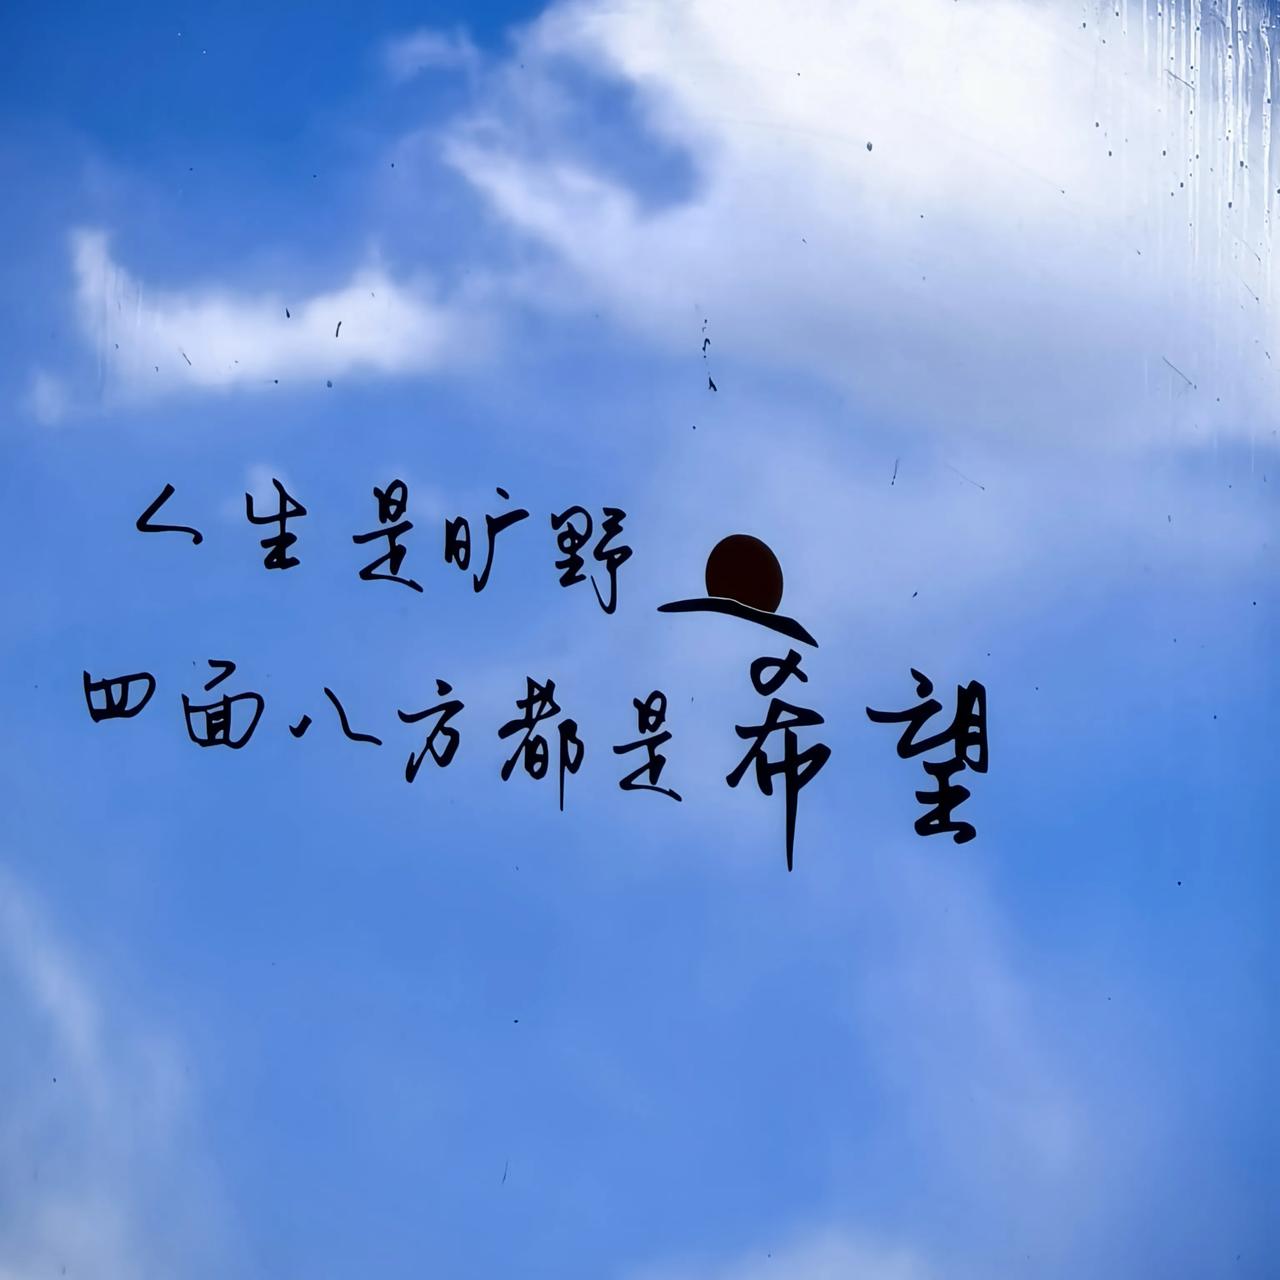 人生是旷野
四面八方都是希望